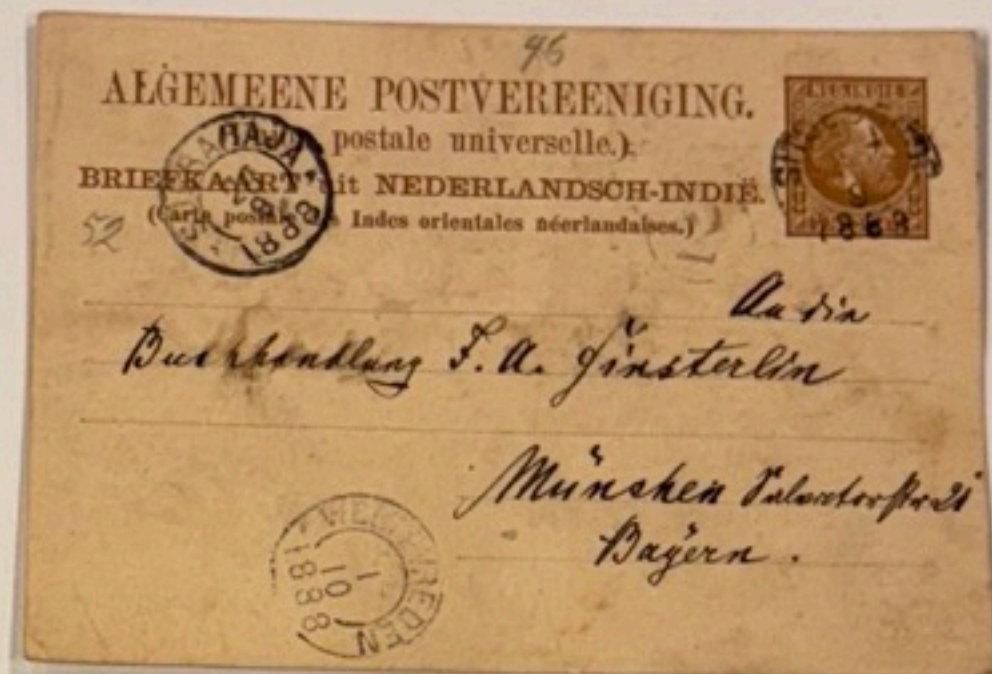 96
ALGEMEENE POSTVEREENIGING.
postale universelle.)
BRIEFKAART uit NEDERLANDSCH-INDIË.
(Carte postale Indes orientales néerlandaises.)
NED. INDIË
1888
RAHAJA
1888
52
An die
Buchhandlung F. A. Finsterlin
München Salvatorstr 21
Bayern.
WELTEVREDEN
1
10
1888